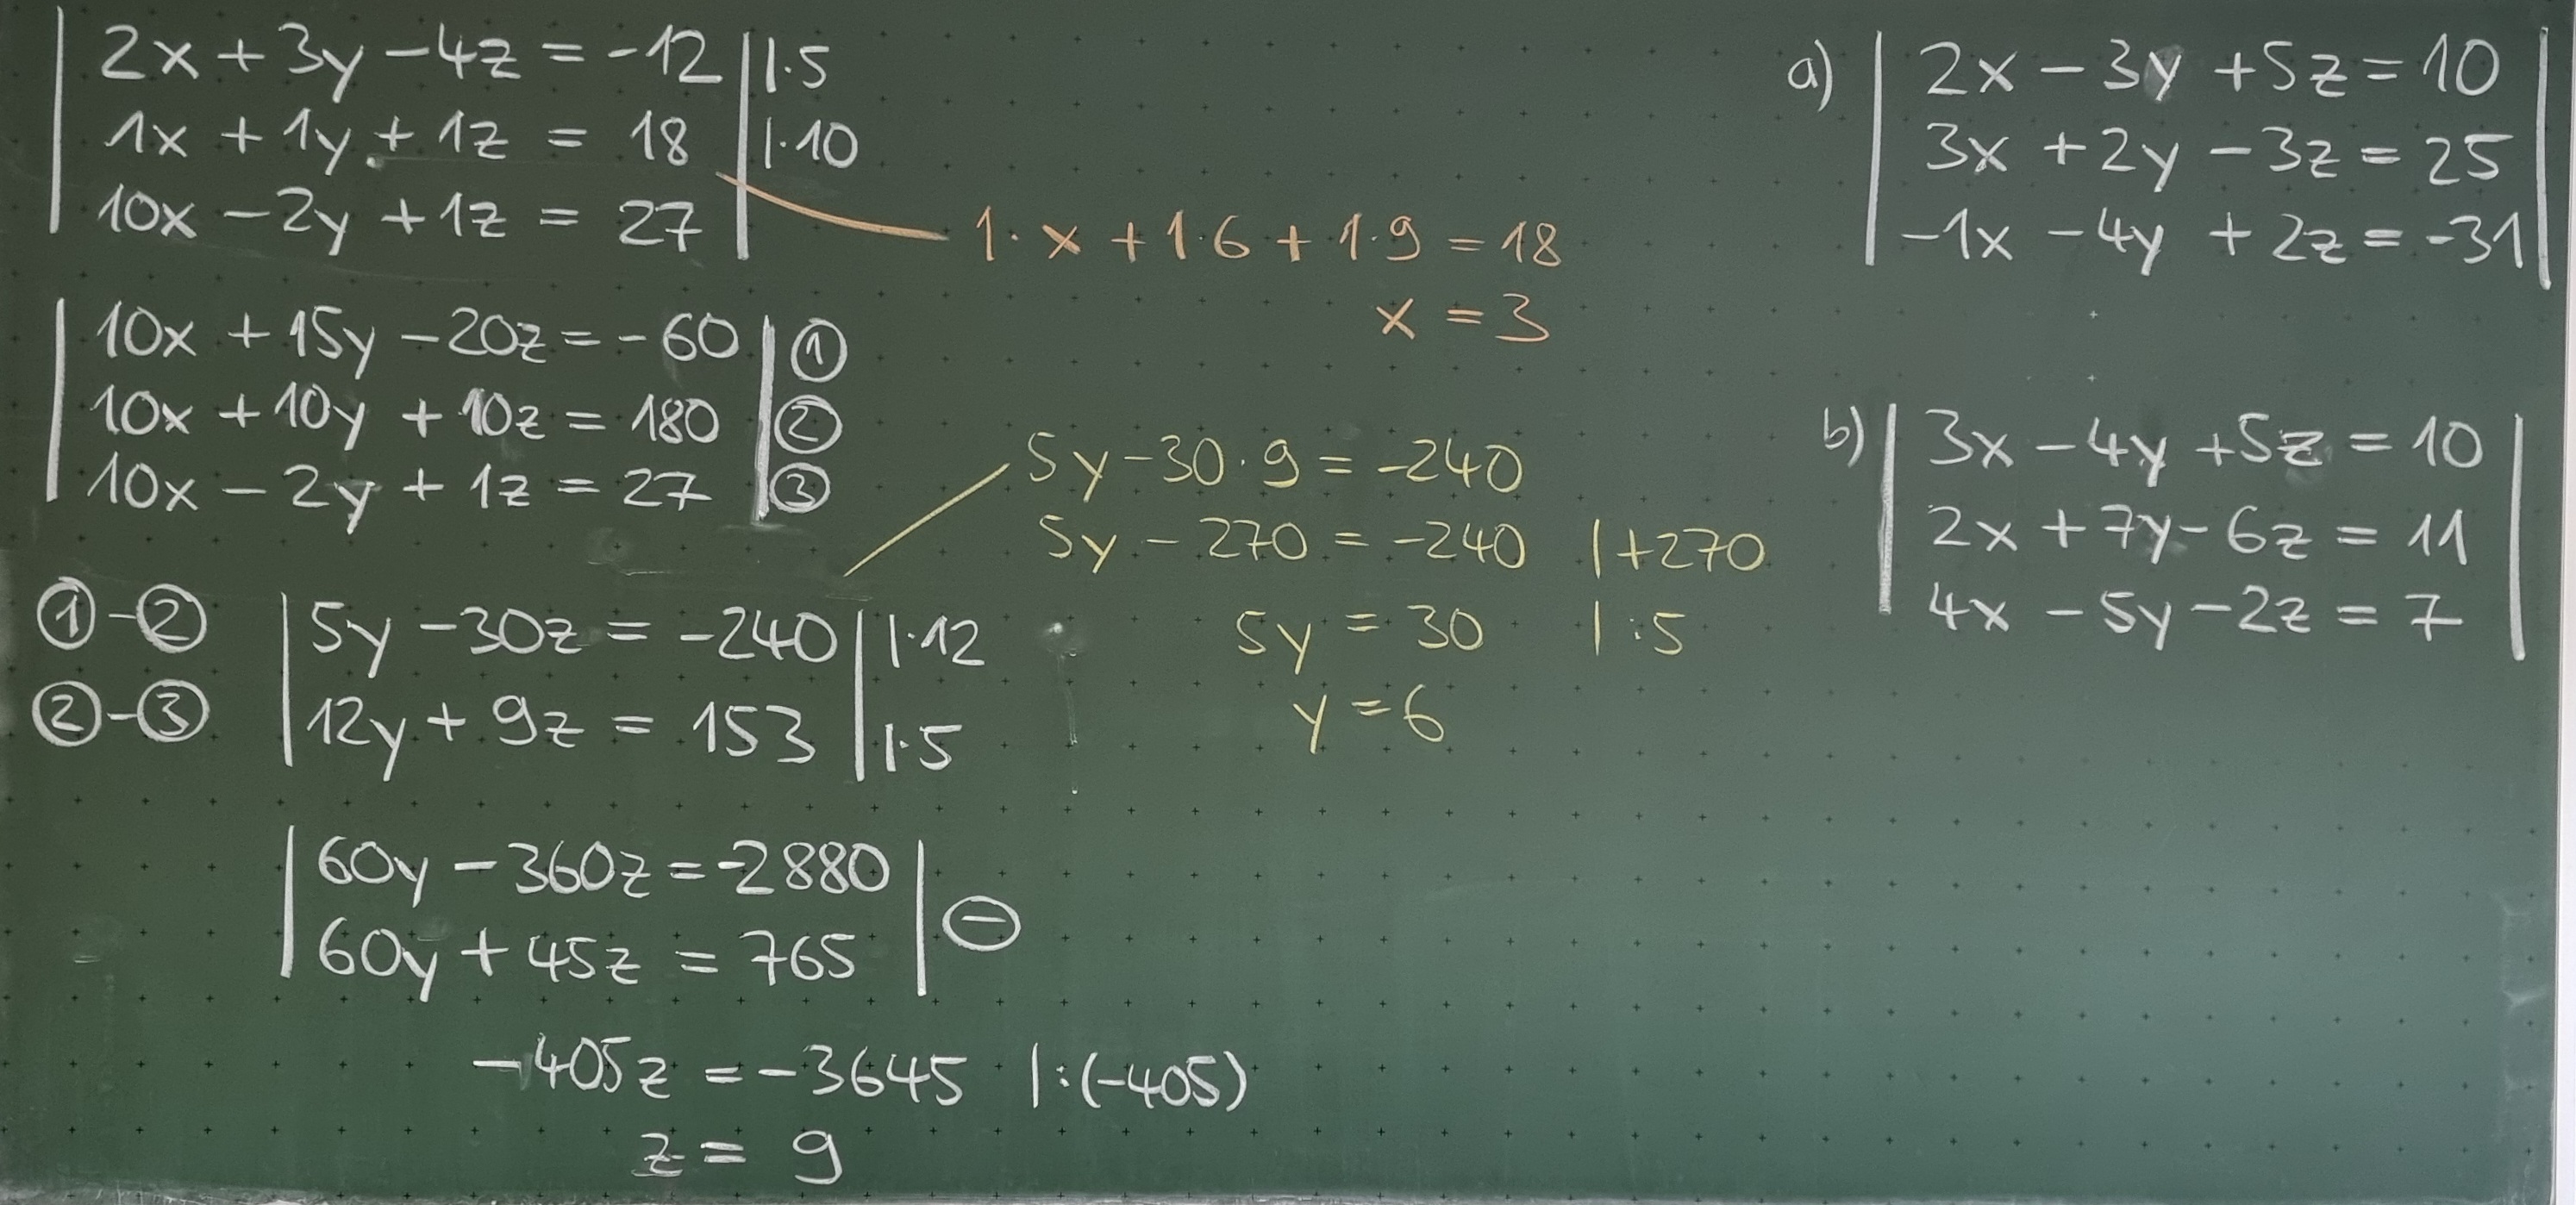 | 2x + 3y - 4z = -12 | |·5
| 1x + 1y + 1z = 18 | |·10
| 10x - 2y + 1z = 27 |
| 10x + 15y - 20z = -60 | ①
| 10x + 10y + 10z = 180 | ②
| 10x - 2y + 1z = 27 | ③
①-② | 5y - 30z = -240 | |·12
②-③ | 12y + 9z = 153 | |·5
| 60y - 360z = -2880 |
| 60y + 45z = 765 | ⊖
-405z = -3645 |:(-405)
z = 9
1·x + 1·6 + 1·9 = 18
x = 3
5y - 30·9 = -240
5y - 270 = -240 |+270
5y = 30 |:5
y = 6
a) | 2x - 3y + 5z = 10 |
| 3x + 2y - 3z = 25 |
| -1x - 4y + 2z = -31 |
b) | 3x - 4y + 5z = 10 |
| 2x + 7y - 6z = 11 |
| 4x - 5y - 2z = 7 |